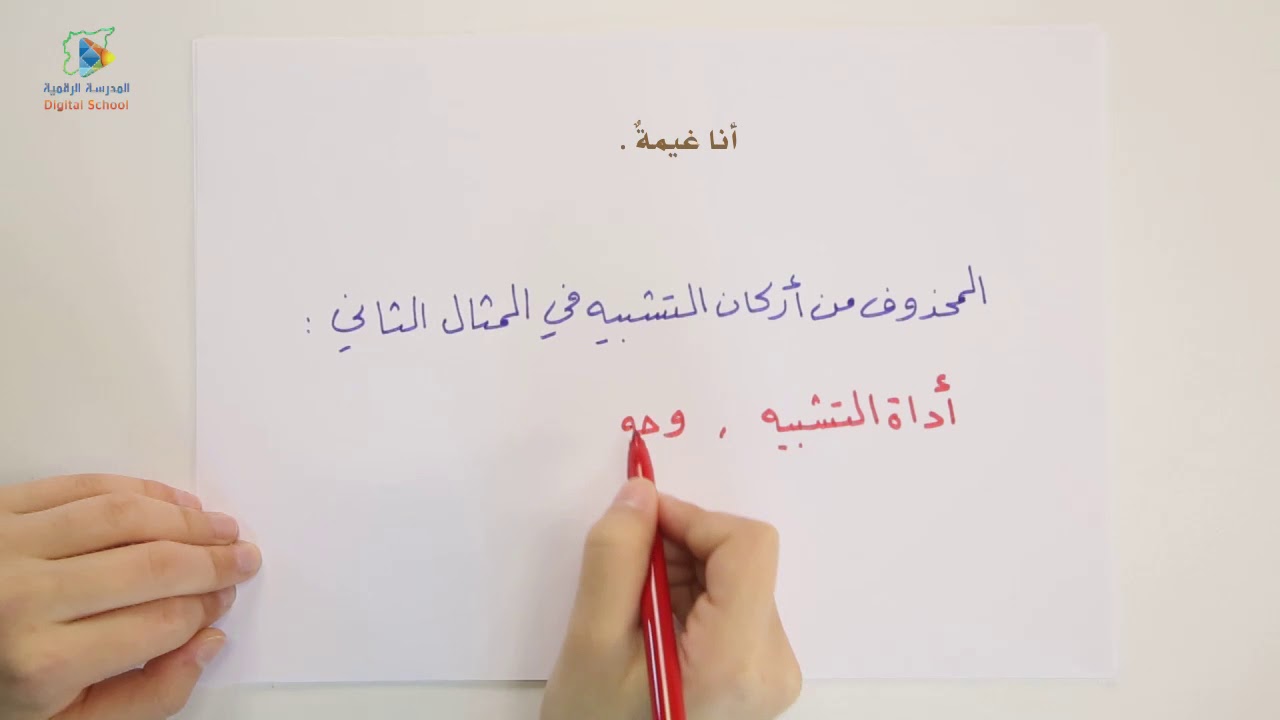 المدرسة الرقمية
Digital School
أنا غيمةٌ .
المحذوف من أركان التشبيه في المثال الثاني :
أداة التشبيه , وجه